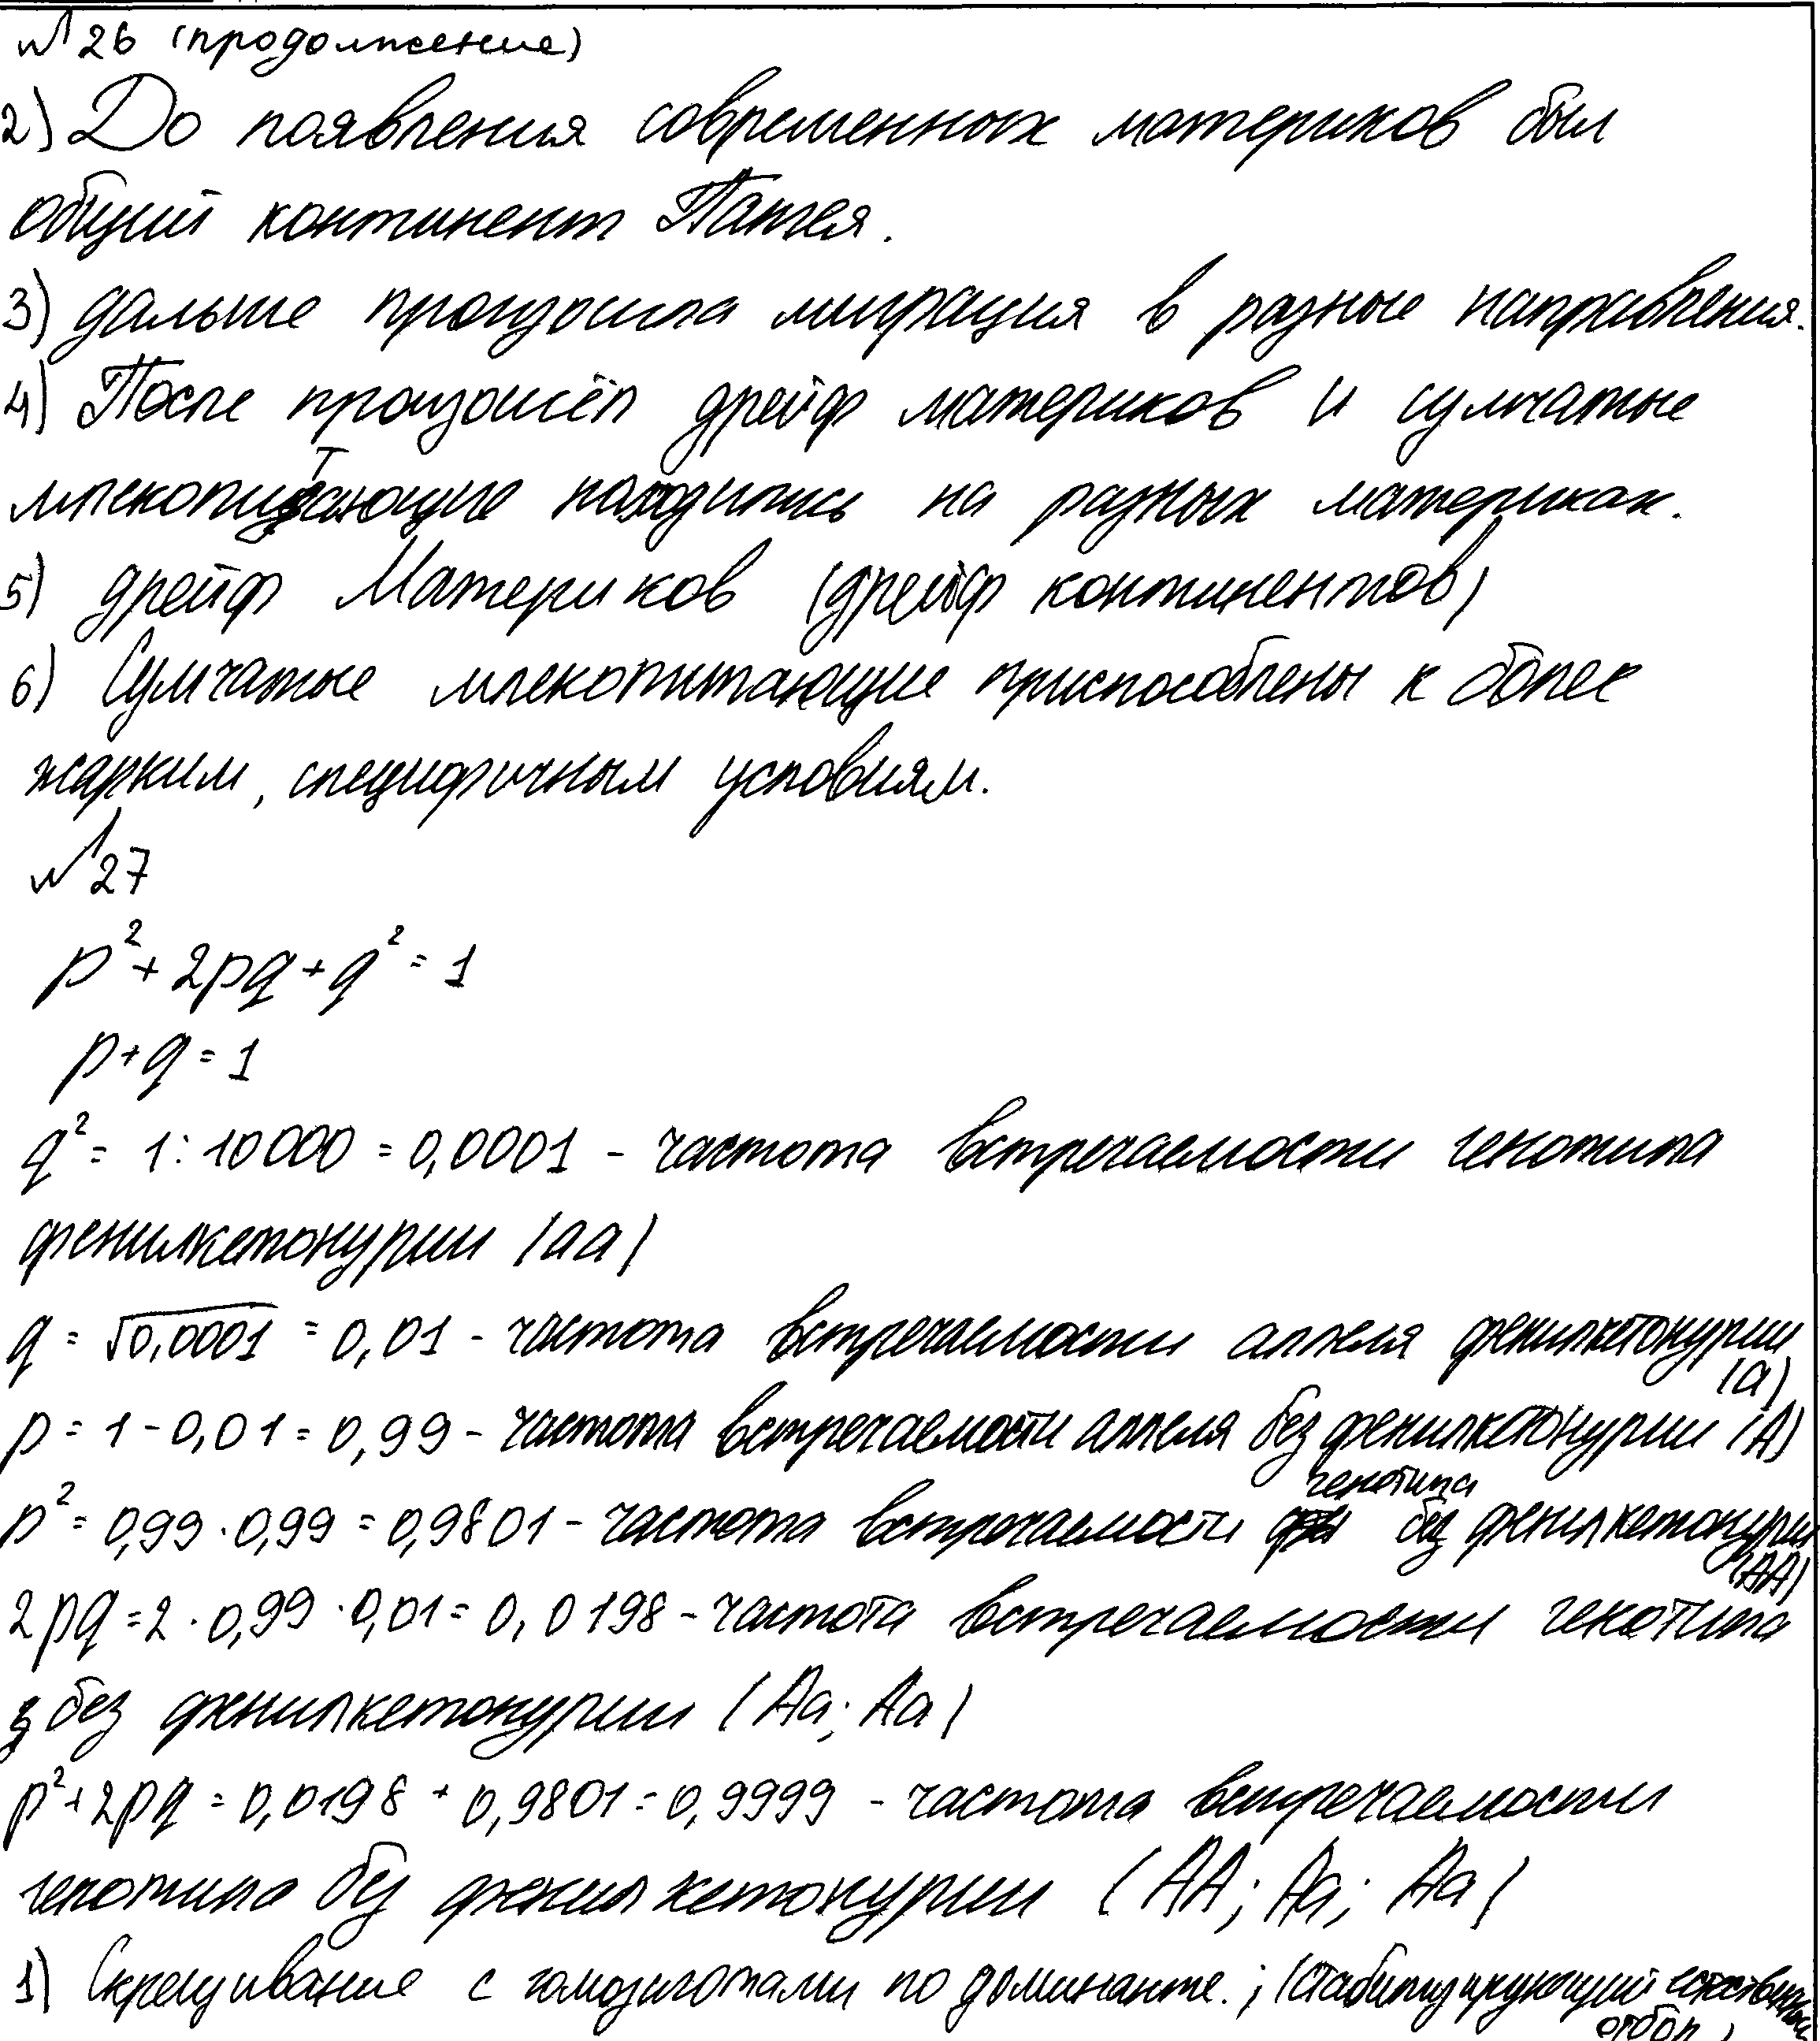 №26 (продолжение)
2) До появления современных материков был
общий континент Пангея.
3) дальше произошла миграция в разные направления.
4) После произошёл дрейф материков и сумчатые
млекопитающие находились на разных материках.
5) дрейф Материков (дрейф континентов)
6) Сумчатые млекопитающие приспособлены к более
жарким, специфичным условиям.
№27
p² + 2pq + q² = 1
p + q = 1
q² = 1 : 10000 = 0,0001 - частота встречаемости генотипа
фенилкетонурии (aa)
q = √0,0001 = 0,01 - частота встречаемости аллеля фенилкетонурии (a)
p = 1 - 0,01 = 0,99 - частота встречаемости аллеля без фенилкетонурии (A)
p² = 0,99 · 0,99 = 0,9801 - частота встречаемости генотипа без фенилкетонурии (AA)
2pq = 2 · 0,99 · 0,01 = 0,0198 - частота встречаемости генотипа
без фенилкетонурии (Aa; Aa)
p² + 2pq = 0,0198 + 0,9801 = 0,9999 - частота встречаемости
генотипа без фенилкетонурии (AA; Aa; Aa)
1) Скрещивание с гомозиготами по доминанте.; (стабилизирующий естественный отбор)